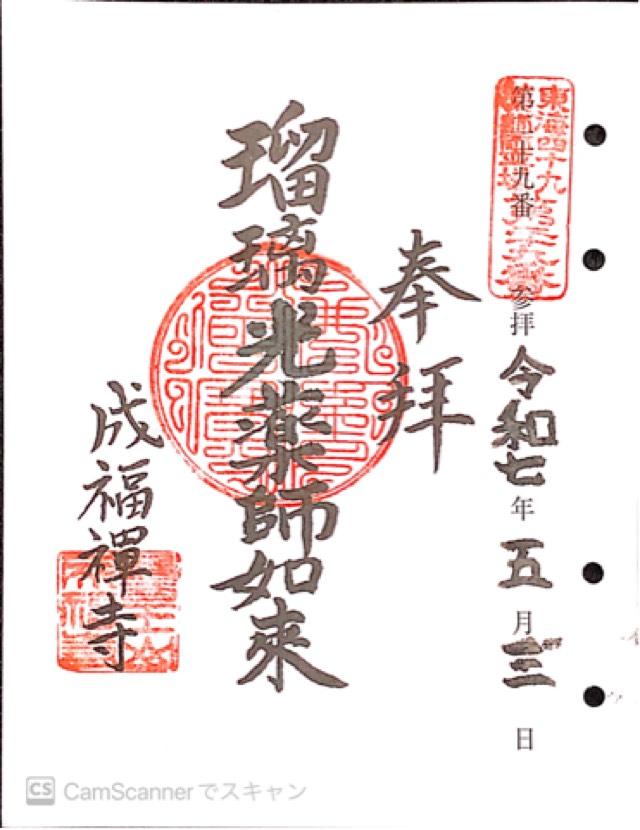 東海四十九
第十九番 参拝 令和七年五月三日
奉拝
瑠璃光薬師如來
成福禅寺
CS CamScannerでスキャン